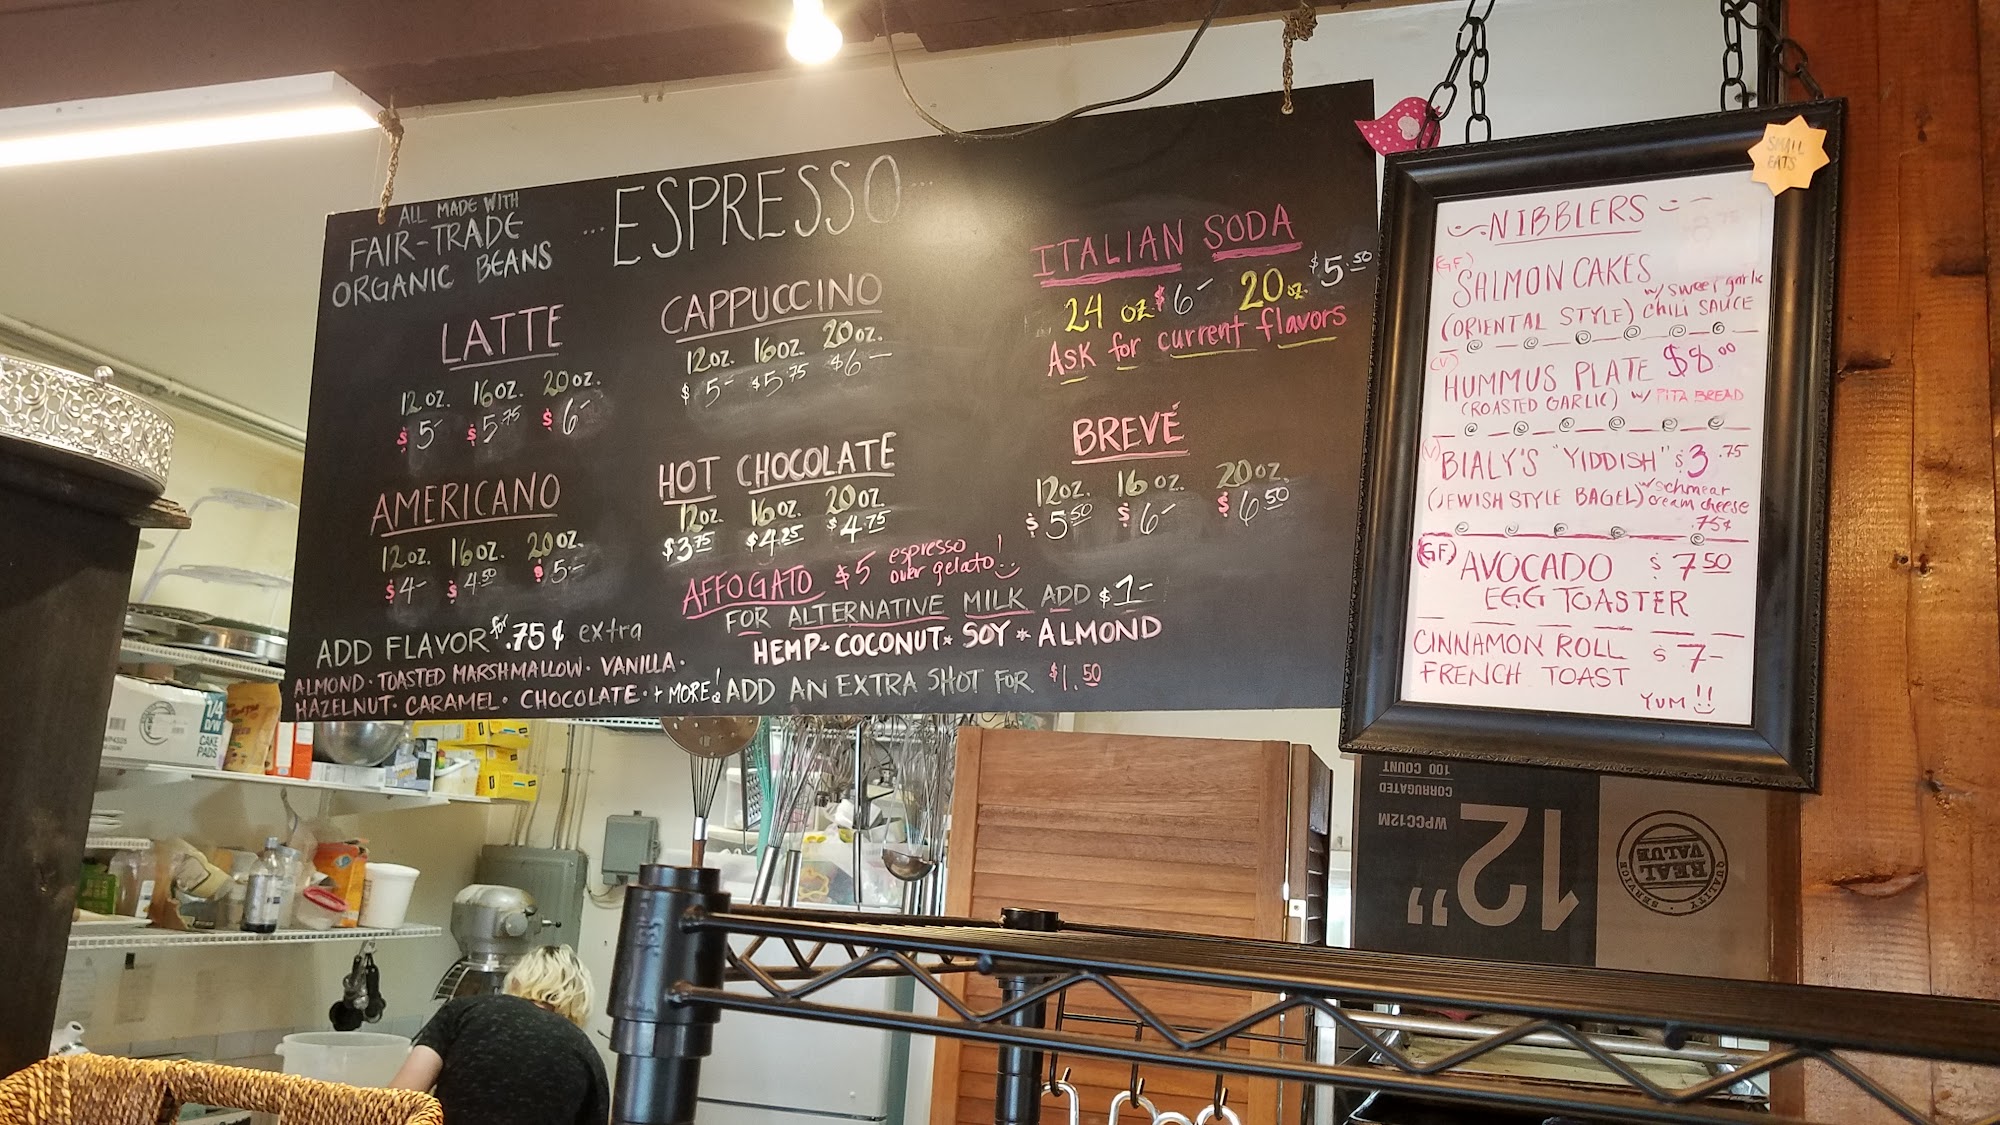 ALL MADE WITH
FAIR-TRADE
ORGANIC BEANS
...ESPRESSO...
LATTE
12oz. 16oz. 20oz.
$5- $5.75 $6-
CAPPUCCINO
12oz. 16oz. 20oz.
$5- $5.75 $6-
ITALIAN SODA
24 oz $6- 20oz. $5.50
Ask for current flavors
AMERICANO
12oz. 16oz. 20oz.
$4- $4.50 $5-
HOT CHOCOLATE
12oz. 16oz. 20oz.
$3.75 $4.25 $4.75
BREVÉ
12oz. 16oz. 20oz.
$5.50 $6- $6.50
AFFOGATO $5 espresso
over gelato!
FOR ALTERNATIVE MILK ADD $1-
HEMP * COCONUT * SOY * ALMOND
ADD FLAVOR for .75¢ extra
ALMOND · TOASTED MARSHMALLOW · VANILLA ·
HAZELNUT · CARAMEL · CHOCOLATE · + MORE!
ADD AN EXTRA SHOT FOR $1.50
SMALL
EATS
NIBBLERS
(GF)
SALMON CAKES
w/ sweet garlic
(ORIENTAL STYLE) CHILI SAUCE
(V)
HUMMUS PLATE $8.00
(ROASTED GARLIC) w/ PITA BREAD
(V)
BIALY'S "YIDDISH" $3.75
(JEWISH STYLE BAGEL) w/ schmear
cream cheese
.75¢
(GF) AVOCADO $7.50
EGG TOASTER
CINNAMON ROLL $7-
FRENCH TOAST
YUM!!
1/4
CAKE
PADS
12"
WPCC12M
CORRUGATED
100 COUNT
REAL
VALUE
SERVICE · QUALITY